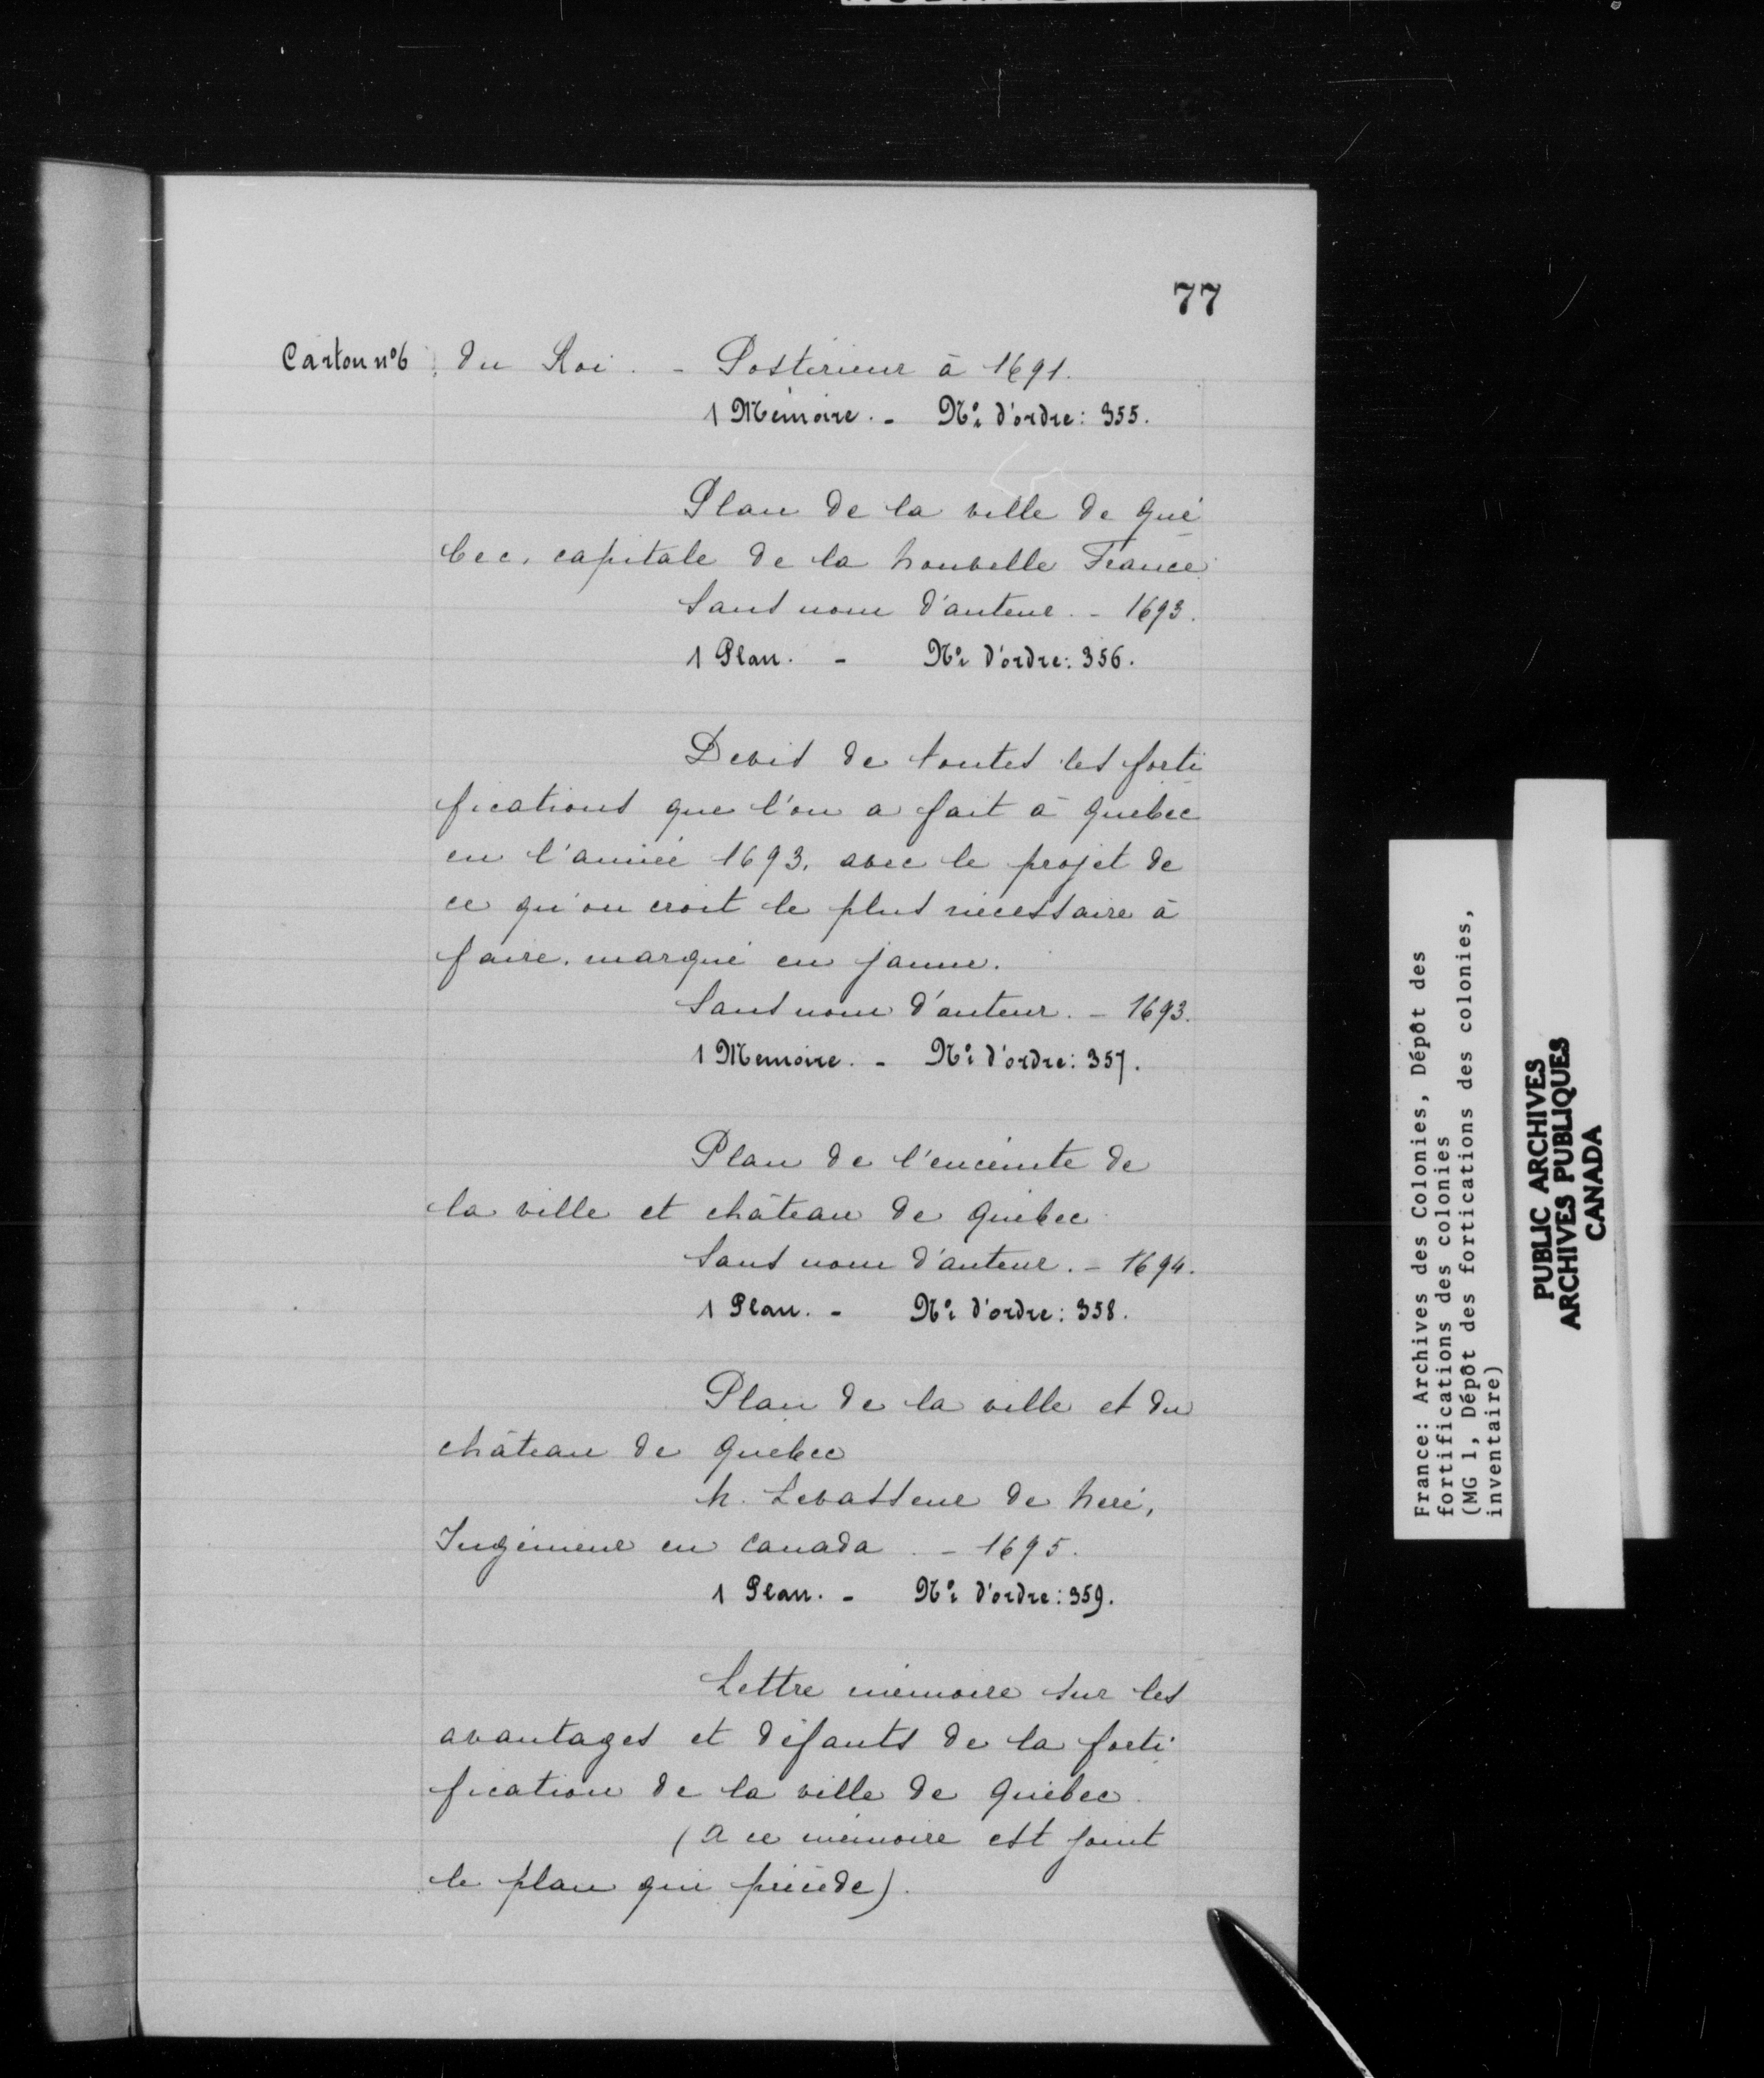 77
Carton nº 6
du Roi. - Postérieur à 1691.
1 Mémoire. - Nº d'ordre: 355.
Plan de la ville de Qué
bec, capitale de la Nouvelle France
Sans nom d'auteur. - 1693.
1 Plan. - Nº d'ordre: 356.
Devis de toutes les forti
fications que l'on a fait à Québec
en l'année 1693, avec le projet de
ce qu'on croit le plus nécessaire à
faire, marqué en jaune.
Sans nom d'auteur. - 1693.
1 Mémoire. - Nº d'ordre: 357.
Plan de l'enceinte de
la ville et château de Québec
Sans nom d'auteur. - 1694.
1 Plan. - Nº d'ordre: 358.
Plan de la ville et du
château de Québec
N. Levasseur de Neré,
Ingénieur en Canada. - 1695.
1 Plan. - Nº d'ordre: 359.
Lettre mémoire sur les
avantages et défauts de la forti
fication de la ville de Québec.
(A ce mémoire est joint
le plan qui précède).
France: Archives des Colonies, Dépôt des
fortifications des colonies
(MG 1, Dépôt des fortications des colonies,
inventaire)
PUBLIC ARCHIVES
ARCHIVES PUBLIQUES
CANADA